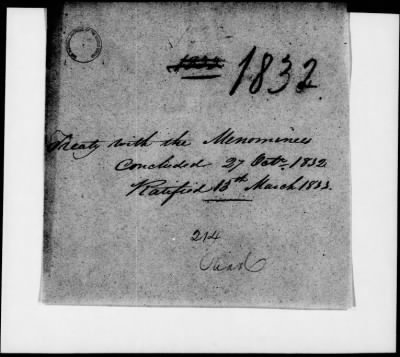 1832
Treaty with the Menominees
Concluded 27 Octr. 1832.
Ratified 13th March 1833.
214